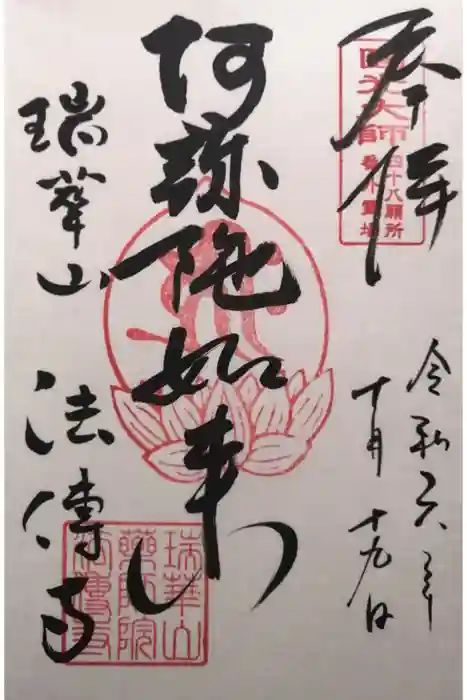 奉拝
圓光大師
四十八願所
番外霊場
令和六年
十月十九日
阿弥陀如来
瑞華山
法傳寺
瑞華山
藥師院
法傳寺